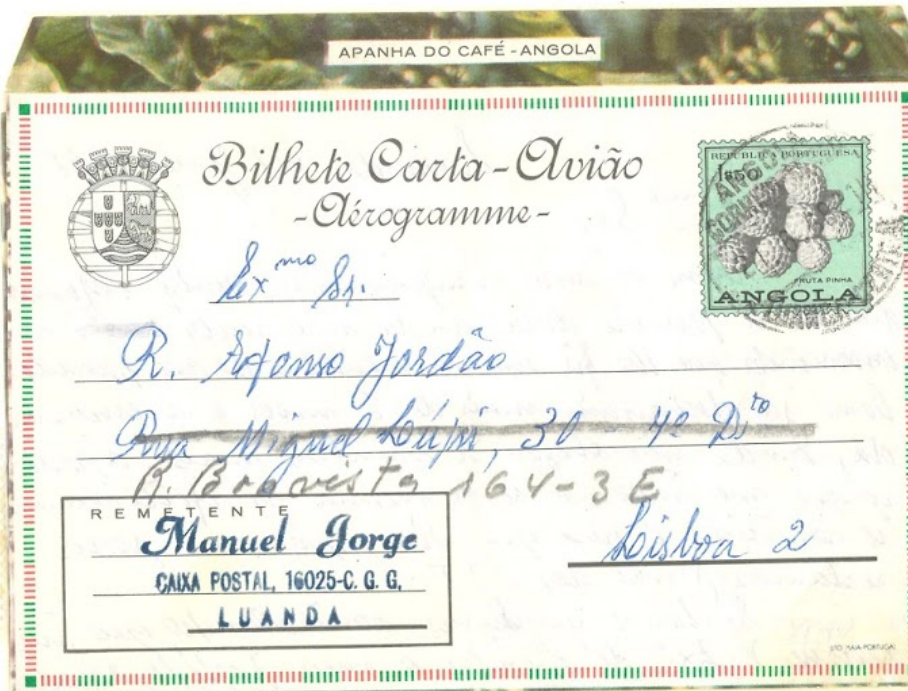 APANHA DO CAFÉ - ANGOLA
Bilhete Carta-Avião
-Aérogramme-
REPUBLICA PORTUGUESA
1$50
FRUTA PINHA
ANGOLA
Exmo Sr.
R. Afonso Jordão
Rua Miguel Lúpi, 30 - 4º Dto
R. Boavista 164-3 E
Lisboa 2
REMETENTE
Manuel Jorge
CAIXA POSTAL, 16025-C. G. G.
LUANDA